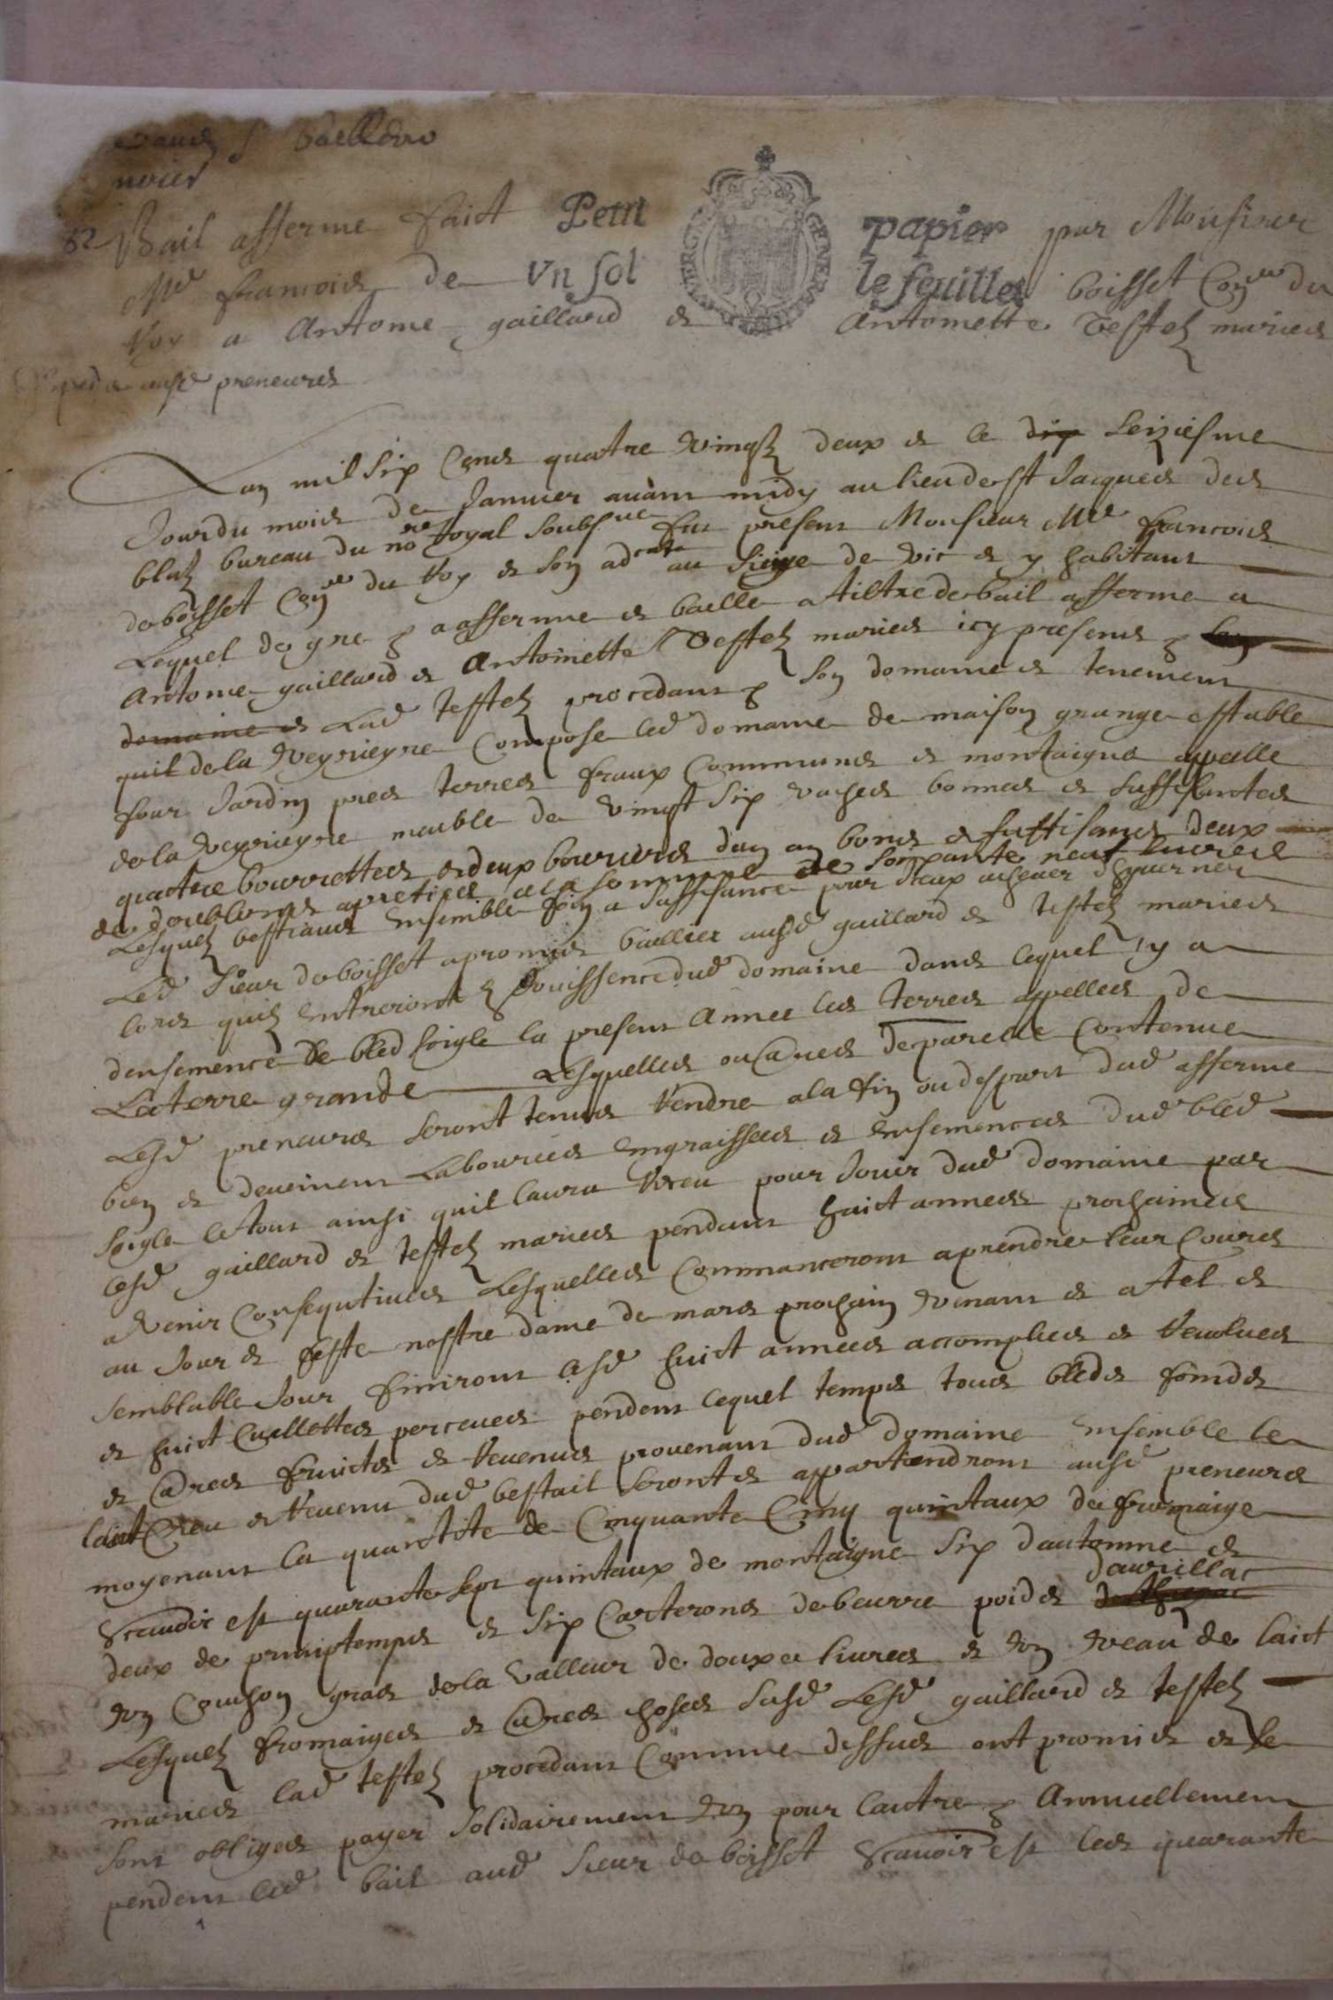 Bail afferme faict Petit papier par Monsieur
Me francois de Vn sol le feuillet boisset Coner du
Roy a Antoine gaillard et Antoinette Teffel maries
preneurs
Lan mil six cens quatre vingtz deux et le dix seiziesme
Jour du mois de Janvier avant midy au lieu de st Jacques des
blatz bureau du nore Royal soubsne fut present Monsieur Me francois
de boisset Coner du Roy et son adcat au siege de vic et y habitant
Lequel de gre a afferme et baille a tiltre de bail afferme a
Antoine gaillard et Antoinette Teffel maries icy presens
domaine et Lad Teffel procedant son domaine et tenement
quil de la Veyrieyre compose led domaine de maison grange estable
four Jardin pres terres fraux Communs et montaigne appelle
de la Veyrieyre meuble de vingt six vaches bonnes et suffisantes
quattre bourrettes et deux bourretz dun an bons et suffisans deux
de doublons apreties a la somme de soixante neuf livres
Lesquelz bestiaux Ensemble foin a suffisance pour Iceux achever dhyverner
Led Sieur de boisset a promis bailler ausd gaillard et Teffel maries
lors quilz Entreront Jouissence dud domaine dans lequel y a
densemence de bled soigle la presant Annee les terres appelles de
La terre grande Lesquelles ou autres de pareille Contenue
Lesd preneurs seront tenus Rendre a la fin ou despart dud afferme
bien et deuement Labourees Engraissees et Ensemences dud bled
soigle le tout ainsi quil laura Receu pour Jouir dud domaine par
lesd gaillard et Teffel maries pendant huict annees prochaines
a venir Consequtives Lesquelles Commanceront a prendre leur Cours
au Jour et feste nostre dame de mars prochain venant et a tel et
semblable Jour finiront lesd huict annees accomplies et Revolues
et huict Cuellettes perceues pendent lequel temps tous bleds foinds
et autres fruicts et Revenus provenant dud domaine Ensemble le
laict Creu et Revenu dud bestail seront et appartiendront ausd preneurs
moyenant la quantite de Cinquante Cinq quintaux de fromaige
Scavoir est quarante sept quintaux de montaigne six dautomne et
deux de primptemps et six Carterons de beurre poids daurillac
Vn Couchon gras de la valleur de douze livres et Vn veau de laict
Lesquelz fromaiges et autres choses susd Lesd gaillard et Teffel
maries lad Teffel procedant Comme dessus ont promis et se
sont obliges payer solidairement Vn pour lautre Annuellement
pendent led bail aud Sieur de boisset Scavoir est les quarante